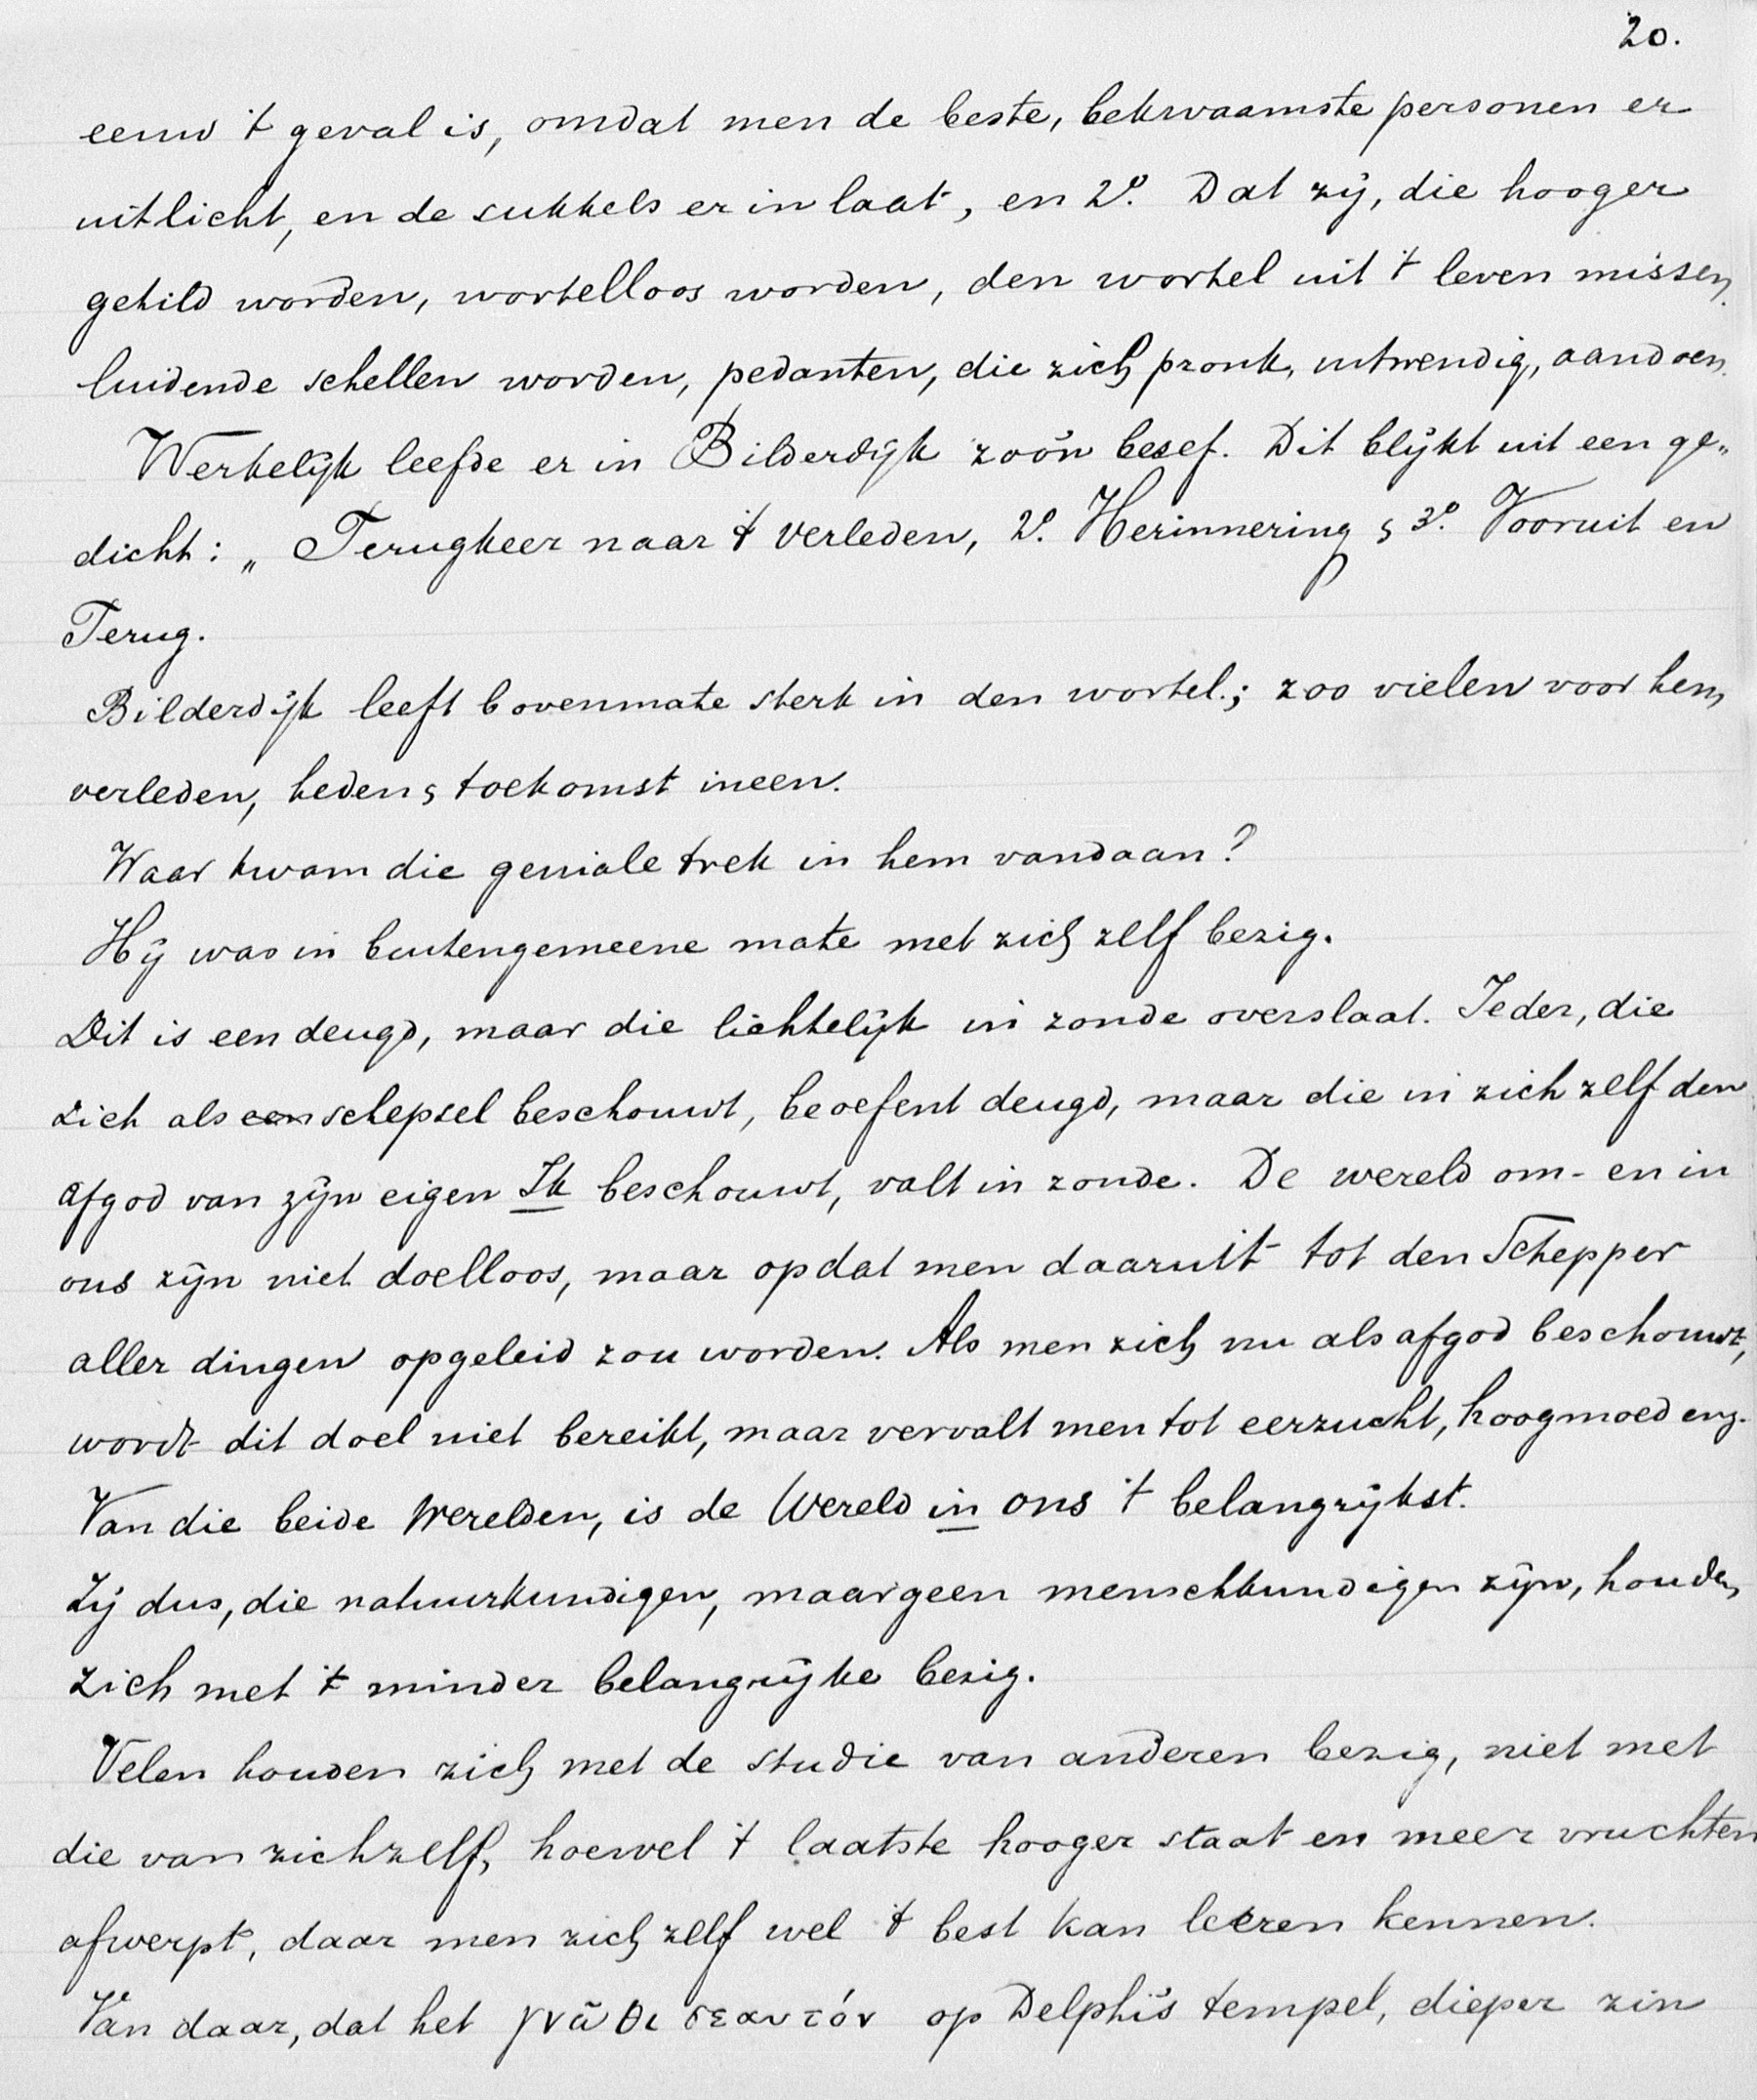 20.
eeuw 't geval is, omdat men de beste, bekwaamste personen er
uitlicht, en de sukkels er in laat, en 2º. Dat zij, die hooger
getild worden, wortelloos worden, den wortel uit 't leven missen,
luidende schellen worden, pedanten, die zich pronk, uitwendig, aandoen.
Werkelijk leefde er in Bilderdijk zoo'n besef. Dit blijkt uit een ge„
dicht: „ Terugkeer naar 't verleden, 2º. Herinnering & 3º. Vooruit en
Terug.
Bilderdijk leeft bovenmate sterk in den wortel.; zoo vielen voor hem
verleden, heden & toekomst ineen.
Waar kwam die geniale trek in hem vandaan?
Hij was in buitengemeene mate met zich zelf bezig.
Dit is een deugd, maar die lichtelijk in zonde overslaat. Ieder, die
zich als een schepsel beschouwt, beoefent deugd, maar die in zich zelf den
afgod van zijn eigen Ik beschouwt, valt in zonde. De wereld om- en in
ons zijn niet doelloos, maar opdat men daaruit tot den Schepper
aller dingen opgeleid zou worden. Als men zich nu als afgod beschouwt,
wordt dit doel niet bereikt, maar vervalt men tot eerzucht, hoogmoed enz.
Van die beide Werelden, is de Wereld in ons 't belangrijkst.
Zij dus, die natuurkundigen, maar geen menschkundigen zijn, houden
zich met 't minder belangrijke bezig.
Velen houden zich met de studie van anderen bezig, niet met
die van zichzelf, hoewel 't laatste hooger staat en meer vruchten
afwerpt, daar men zich zelf wel 't best kan leeren kennen.
Van daar, dat het γνῶθι σεαυτόν op Delphi's tempel, dieper zin